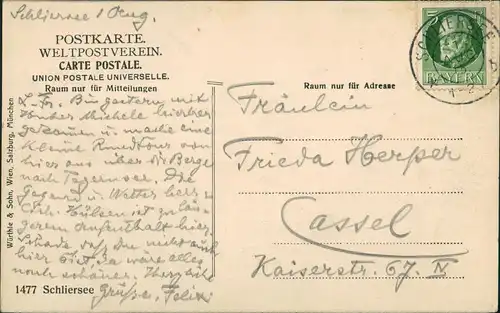 Schliersee 1 Aug.
POSTKARTE.
WELTPOSTVEREIN.
CARTE POSTALE.
UNION POSTALE UNIVERSELLE.
Raum nur für Mitteilungen
Raum nur für Adresse
BAYERN
SCHLIERSEE
L. Fr. Bin gestern mit
hierher
gekommen u. mache eine
kleine Rundtour von
hier aus über die Berge
nach Tegernsee. Die
Gegend u. Wetter herrl.
Frh. Hülsen ist zu län-
gerem Aufenthalt hier.
Schade daß Du nicht auch
hier bist, da wäre alles
noch schöner. Herzliche
Grüße, Felix
Fräulein
Frieda Herper
Cassel
Kaiserstr. 67. IV
Würthle & Sohn, Wien, Salzburg, München
1477 Schliersee